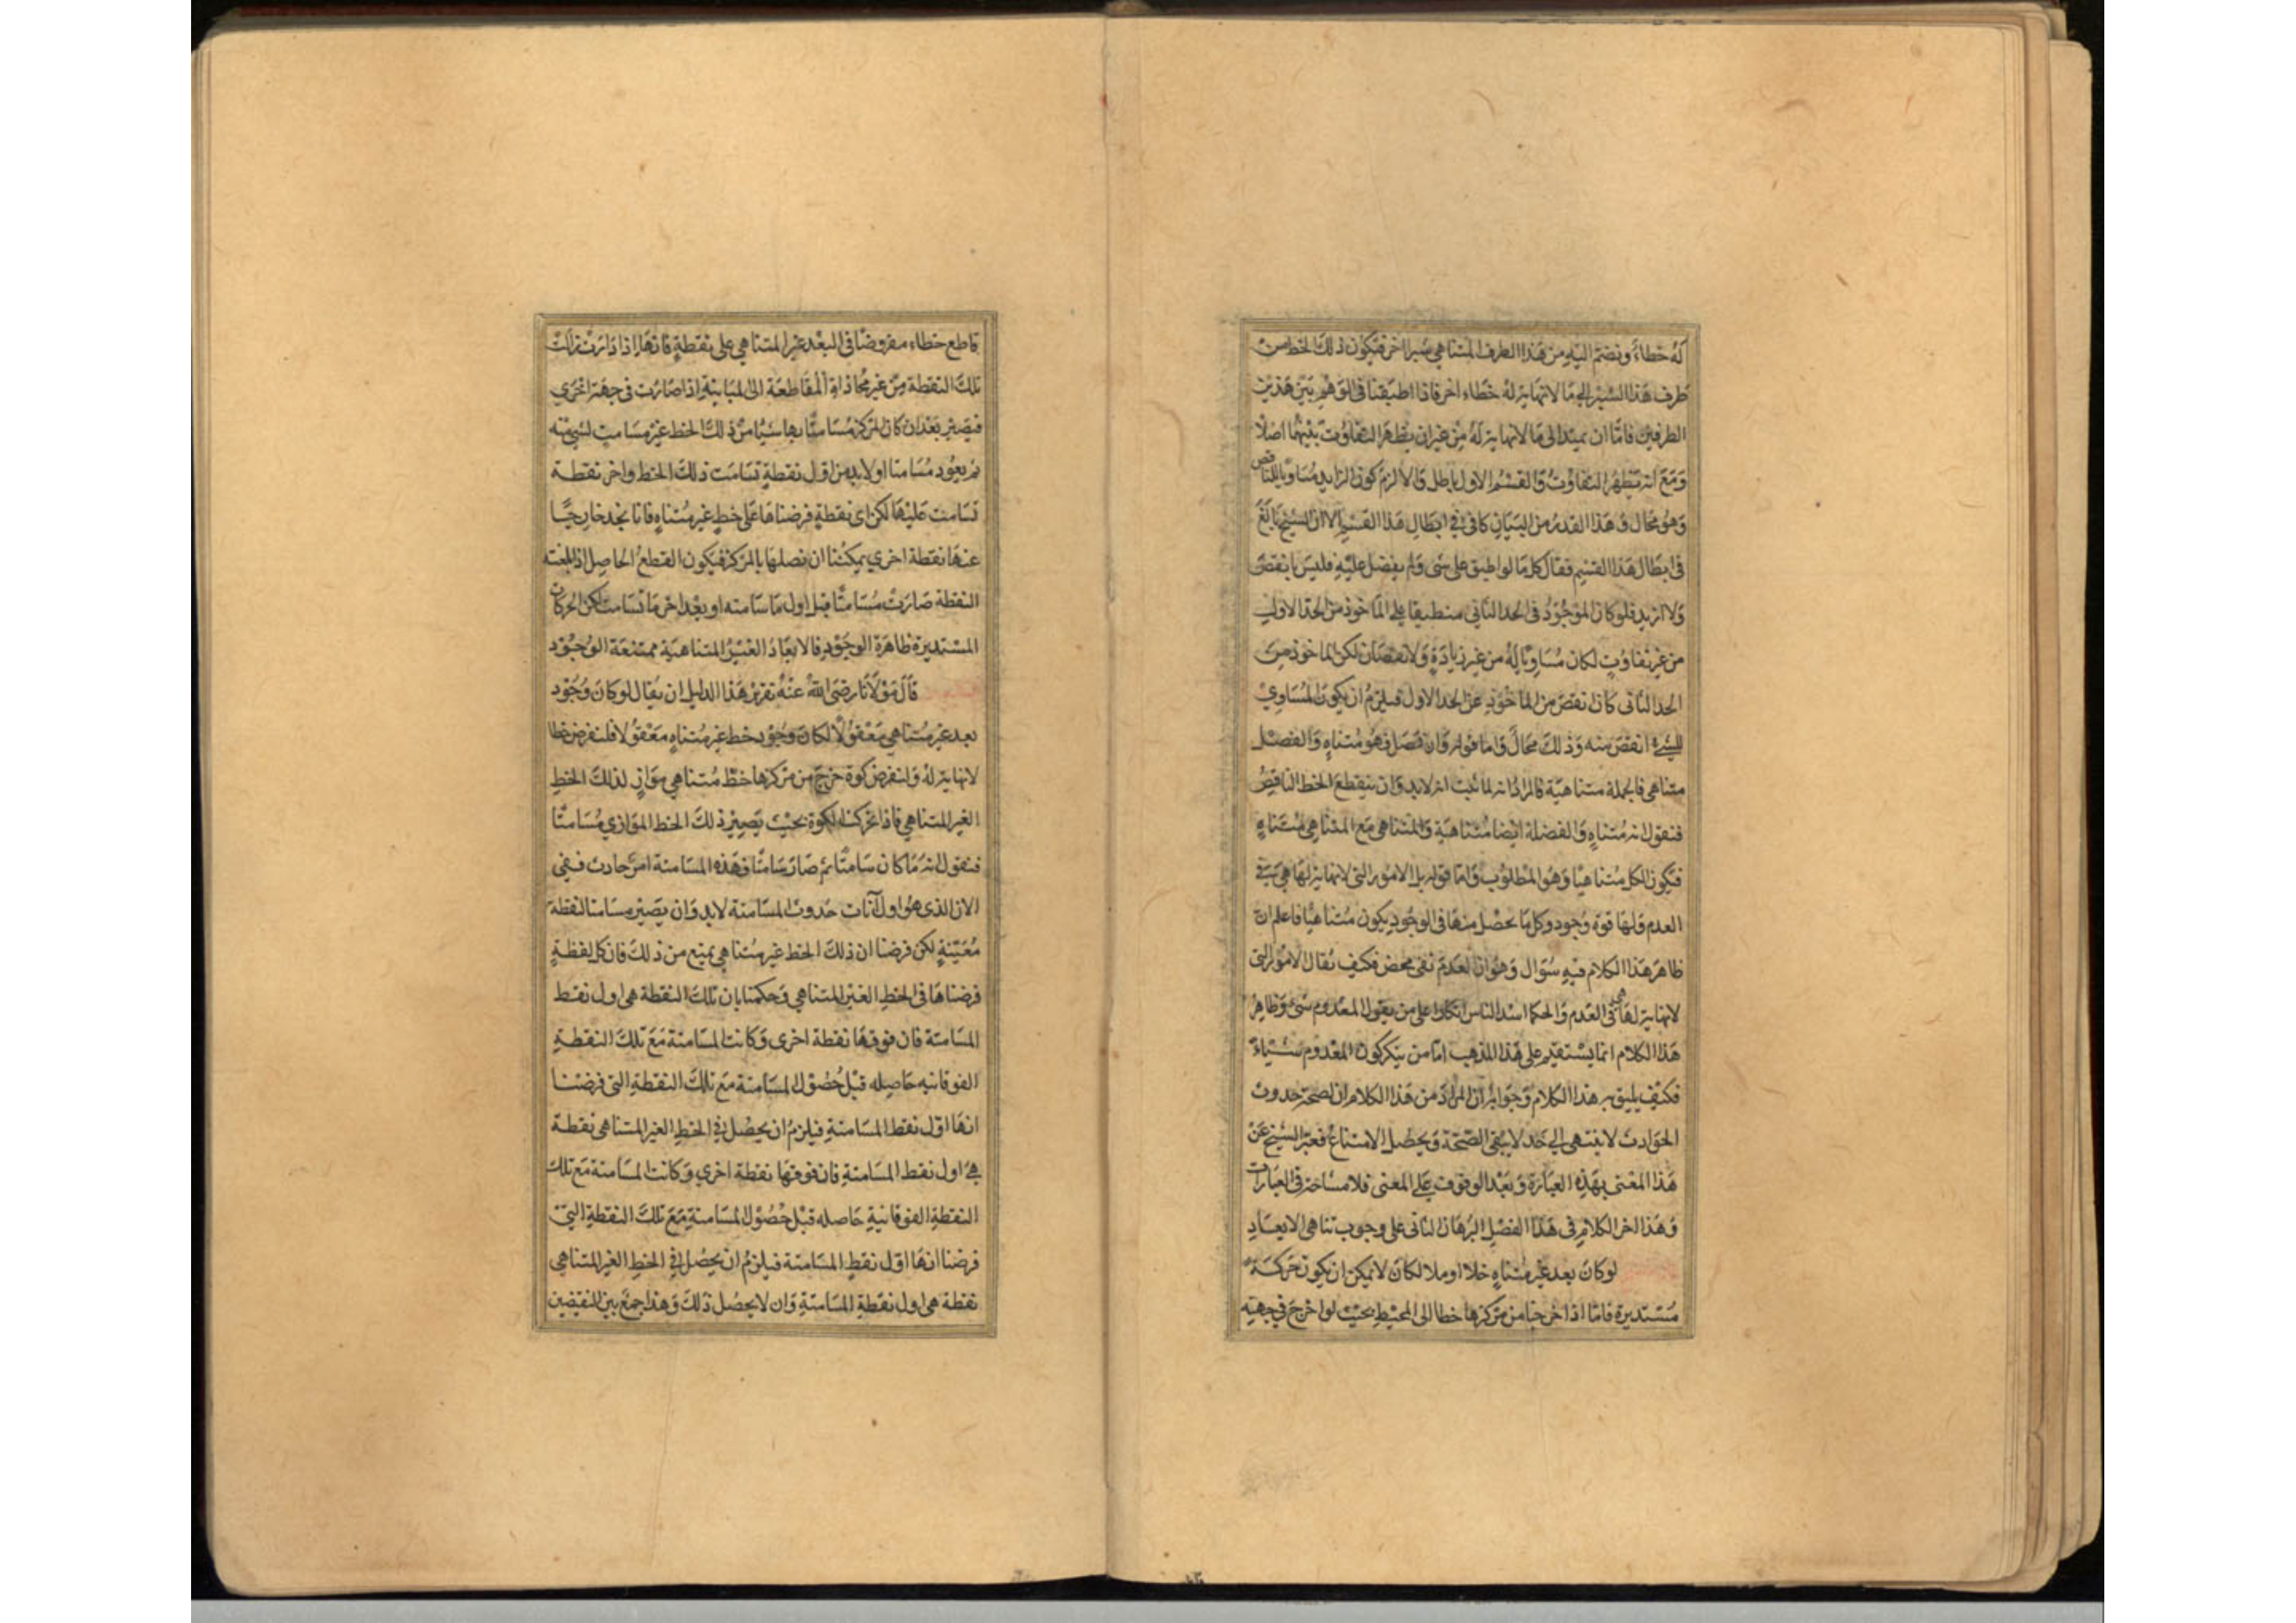 له خطاء ونضم اليه من هذا الطرف المتناهي شبرا اخر فيكون ذلك الخط من
طرف هذا الشبر الى ما لا نهاية له خطاء اخر فاذا اطبقنا في الوهم بين هذين
الطرفين فاما ان يمتدا الى ما لا نهاية له من غير ان يظهر التفاوت بينهما اصلا
ومع انه يظهر التفاوت والقسم الاول باطل والا لزم كون الزايد مساويا للناقص
وهو محال وهذا القدر من البيان كاف في ابطال هذا القسم الا ان الشيخ بالغ
في ابطال هذا القسم فقال كل ما لو اطبق على شى ولم يفضل عليه فليس بانقص
ولا ازيد فلو كان الموجود في الحد الثاني منطبقا على الماخوذ من الحد الاول
من غير تفاوت لكان مساويا له من غير زيادة ولا نقصان لكن الماخوذ من
الحد الثاني كان انقص من الماخوذ عن الحد الاول فيلزم ان يكون المساوي
للشيء انقص منه وذلك محال واما قوله وان فصل فهو متناه والفصل
متناهي فالجملة متناهية فالمراد انه لما ثبت انه لا بد وان ينقطع الخط الناقص
فنقول انه متناه والفضلة ايضا متناهية والمتناهي مع المتناهي متناه
فيكون الكل متناهيا وهو المطلوب واما قوله بل الامور التي لا نهاية لها هي في
العدم ولها قوة وجود وكل ما يحصل منها في الوجود يكون متناهيا فاعلم ان
ظاهر هذا الكلام فيه سؤال وهو ان العدم نفي محض فكيف يقال الامور التي
لا نهاية لها هي في العدم والحكما اشد الناس انكارا على من يقول المعدوم شيء وظاهر
هذا الكلام انما يستقيم على هذا المذهب اما من ينكر كون المعدوم شيئاء
فكيف يليق به هذا الكلام وجوابه ان المراد من هذا الكلام ان لصحة حدوث
الحوادث لا ينتهي الى حد لا يبقى الصحة ويحصل الامتناع فعبر الشيخ عن
هذا المعنى بهذه العبارة وبعد الوقوف على المعنى فلا مشاحة في العبارات
وهذا اخر الكلام في هذا الفصل البرهان الثاني على وجوب تناهي الابعاد
لو كان بعد غير متناه خلا او ملا لكان لا يمكن ان يكون حركة
مستديرة فاما اذا اخرجنا من مركزها خطا الى المحيط بحيث لو اخرج في جهته
قاطع خطاء مفروضا في البعد غير المتناهي على نقطة فانها اذا دارت زالت
تلك النقطة من غير محاذاة المقاطعة الى المباينة اذا صارت في جهة اخرى
فيصير بعد ان كان المركز مسامتا بها شيا من ذلك الخط غير مسامت لشي منه
ثم يعود مسامتا اولا بد من اول نقطة تسامت ذلك الخط واخر نقطة
تسامت عليها لكن اى نقطة فرضناها على خط غير متناه فانا نجد خارجيا
عنها نقطة اخرى يمكننا ان نصلها بالمركز فيكون القطع الحاصل اذا بلغته
النقطة صارت مسامتا قبل اول ما سامته او بعد اخر ما تسامت لكن الحركات
المستديرة ظاهرة الوجود فالابعاد الغير المتناهية ممتنعة الوجود
قال مولانا رضى الله عنه تقرير هذا الدليل ان يقال لو كان وجود
بعد غير متناهي معقولا لكان وجود خط غير متناه معقولا فلنفرض خطا
لا نهاية له ولنفرض كرة خرج من مركزها خط متناهي مواز لذلك الخط
الغير المتناهي فاذا تحركت الكرة بحيث يصير ذلك الخط الموازي مسامتا
فنقول انه ما كان سامتا ثم صار سامتا وهذه المسامتة امر حادث ففي
الان الذى هو اول آنات حدوث المسامتة لا بد وان يصير مسامتا لنقطة
معينة لكن فرضنا ان ذلك الخط غير متناهي يمنع من ذلك فان كل نقطة
فرضناها في الخط الغير المتناهي وحكمنا بان تلك النقطة هى اول نقط
المسامتة فان فوقها نقطة اخرى وكانت المسامتة مع تلك النقطة
الفوقانيه حاصله قبل حصول المسامتة مع تلك النقطة التى فرضنا
انها اول نقط المسامتة فيلزم ان يحصل في الخط الغير المتناهى نقطة
هى اول نقط المسامتة فان فوقها نقطة اخرى وكانت المسامتة مع تلك
النقطة الفوقانية حاصله قبل حصول المسامتة مع تلك النقطة التي
فرضنا انها اول نقط المسامتة فيلزم ان يحصل في الخط الغير المتناهي
نقطة هى اول نقطة المسامتة وان لا يحصل ذلك وهذا جمع بين النقيضين